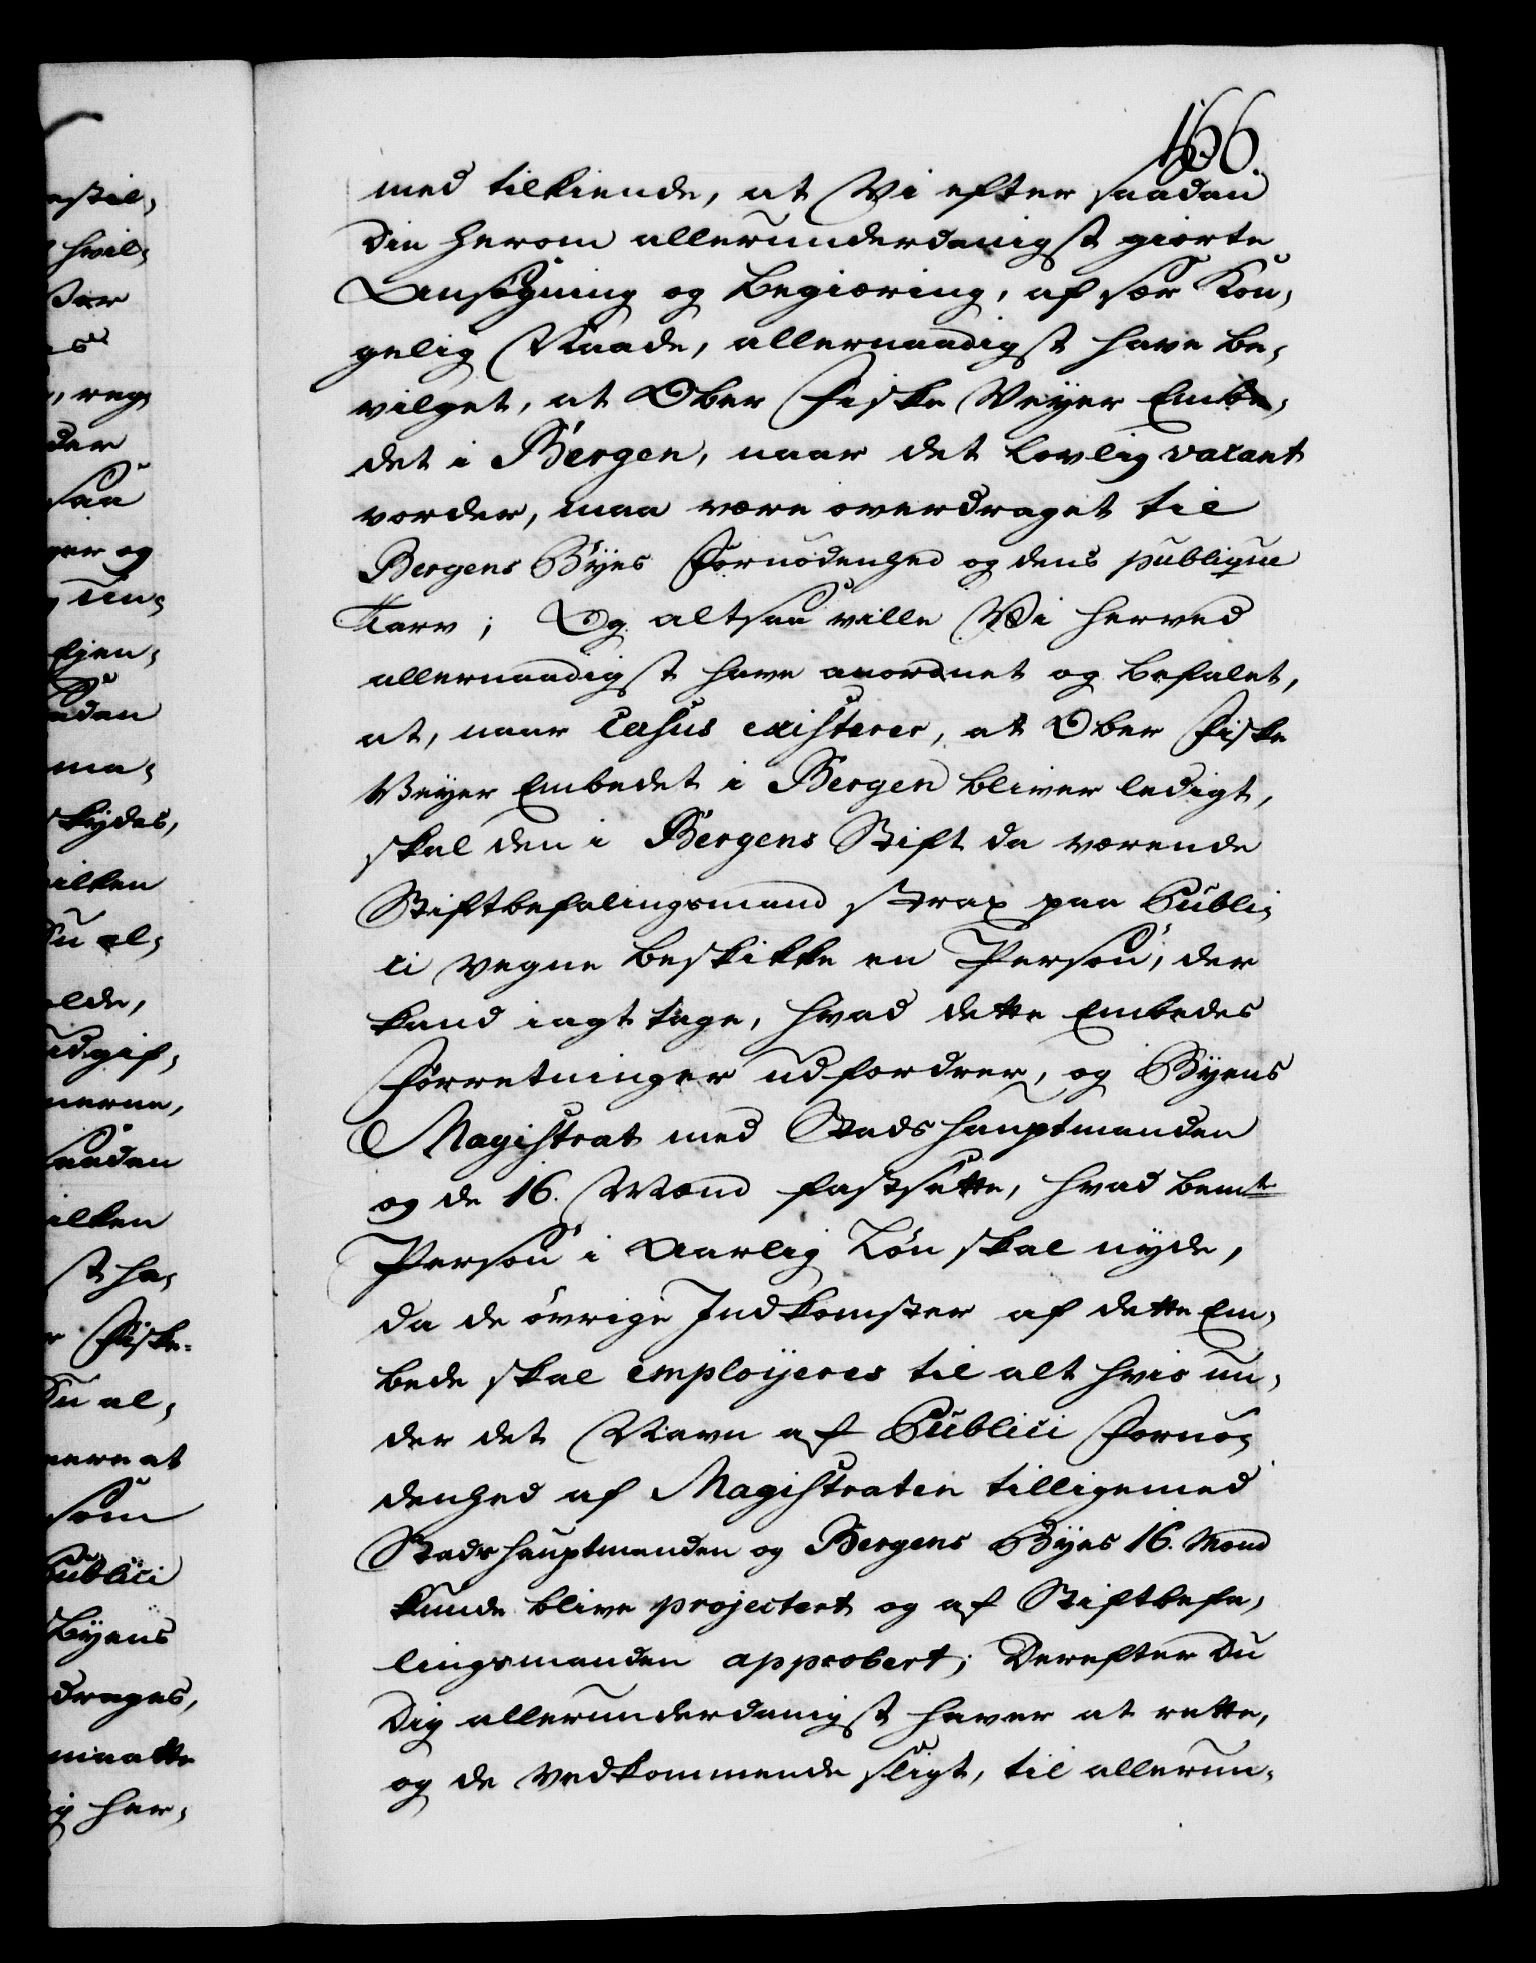 166.
med tilkiende, at Vi efter saadan
Din herom allerunderdanigst giorte
Ansøgning og Begiæring, af sær Kon-
gelig Naade, allernaadigst have be-
vilget, at Ober Fiske Veyer Embe-
det i Bergen, naar det lovlig vacant
vorder, maa være overdraget til
Bergens Byes Fornødenhed og dens publique
Tarv; Og altsaa ville Vi herved
allernaadigst have anordnet og befalet,
at, naar Casus existerer, at Ober Fiske
Veyer Embedet i Bergen bliver ledigt,
skal den i Bergens Stift da værende
Stiftbefalingsmand strax paa Publi-
ci vegne beskikke en Person, der
kand iagttage, hvad dette Embedes
Forretninger udfordrer, og Byens
Magistrat med Stads Hauptmanden
og de 16. Mænd fastsætte, hvad bemt
Person i Aarlig Løn skal nyde,
da de øvrige Indkomster af dette Em-
bede skal employeres til alt hvis un-
der det Navn af Publici Fornø-
denhed af Magistraten tilligemed
Stadshauptmanden og Bergens Byes 16. Mænd
kunde blive projectert og af Stiftbefa-
lingsmanden approbert; Derefter Du
Dig allerunderdanigst haver at rette,
og de Vedkommende sligt, til allerun-